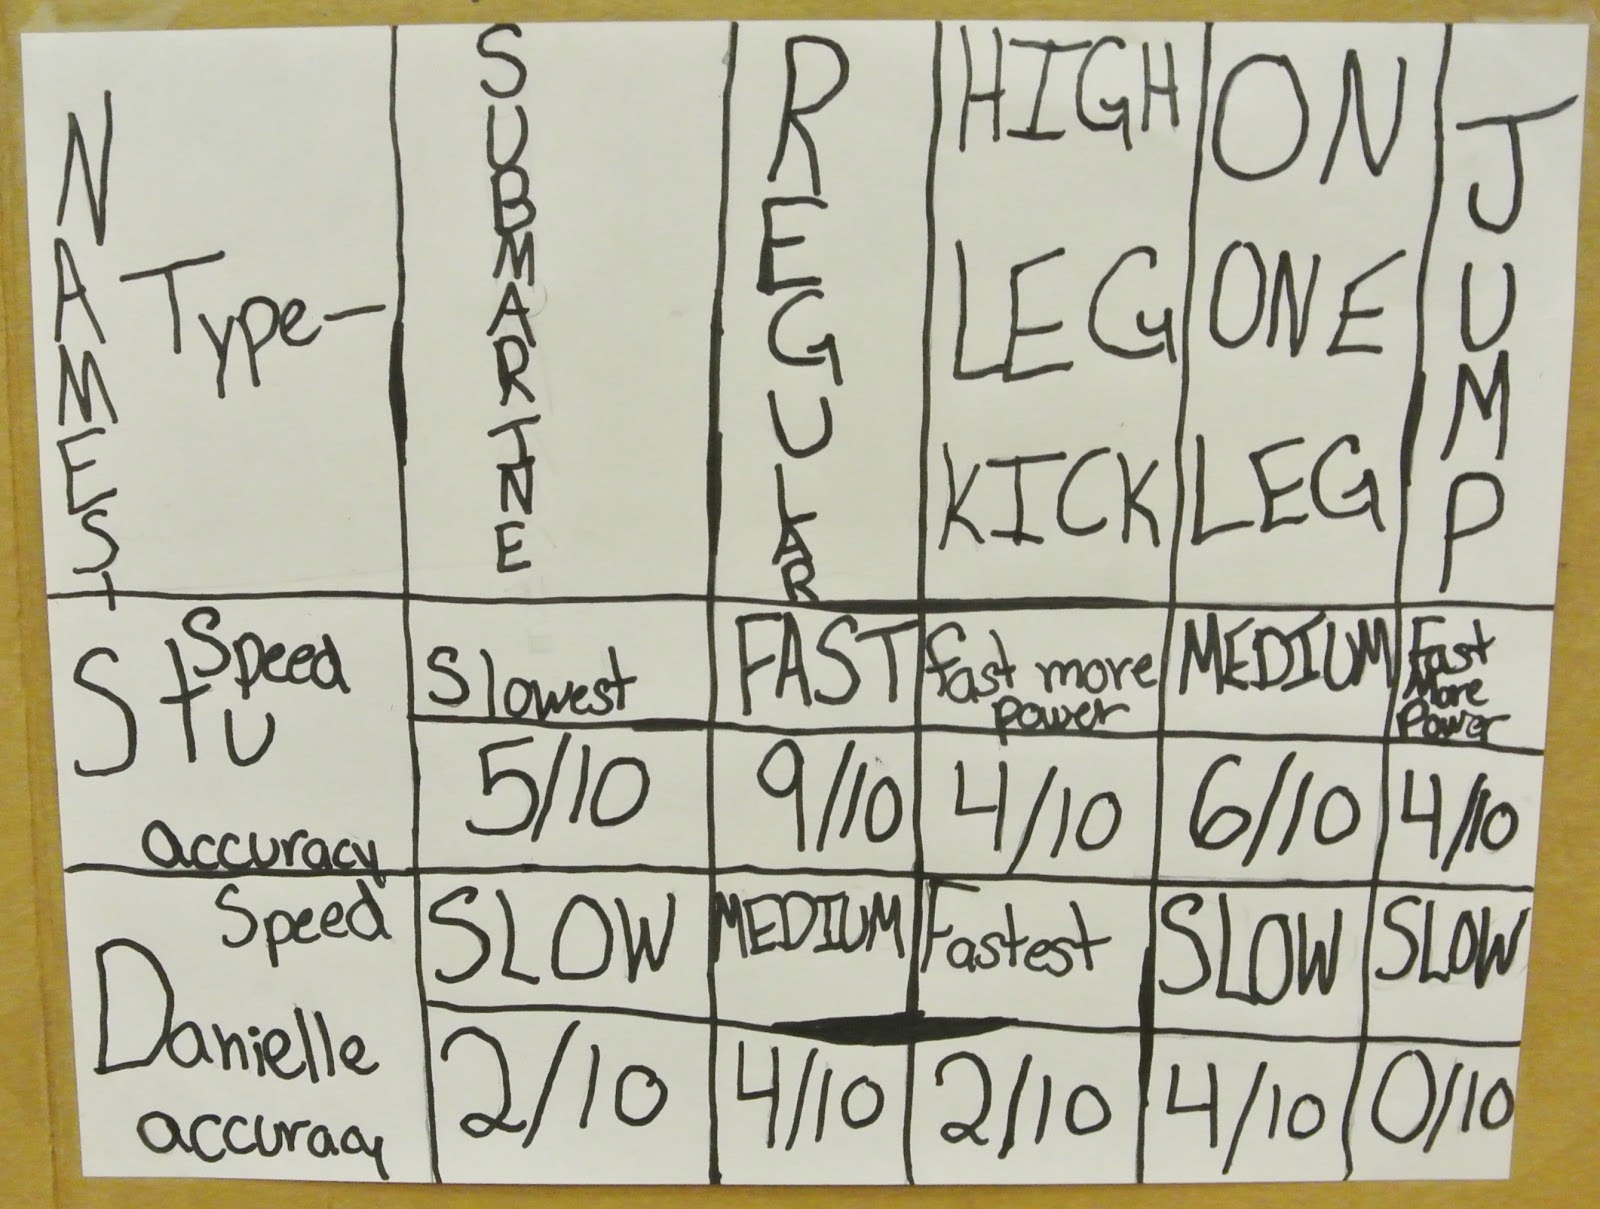 NAMES
Type-
SUBMARINE
REGULAR
HIGH
LEG
KICK
ON
ONE
LEG
JUMP
Stu
Speed
Slowest
FAST
fast more
power
MEDIUM
Fast
More
Power
accuracy
5/10
9/10
4/10
6/10
4/10
Danielle
Speed
SLOW
MEDIUM
Fastest
SLOW
SLOW
accuracy
2/10
4/10
2/10
4/10
0/10